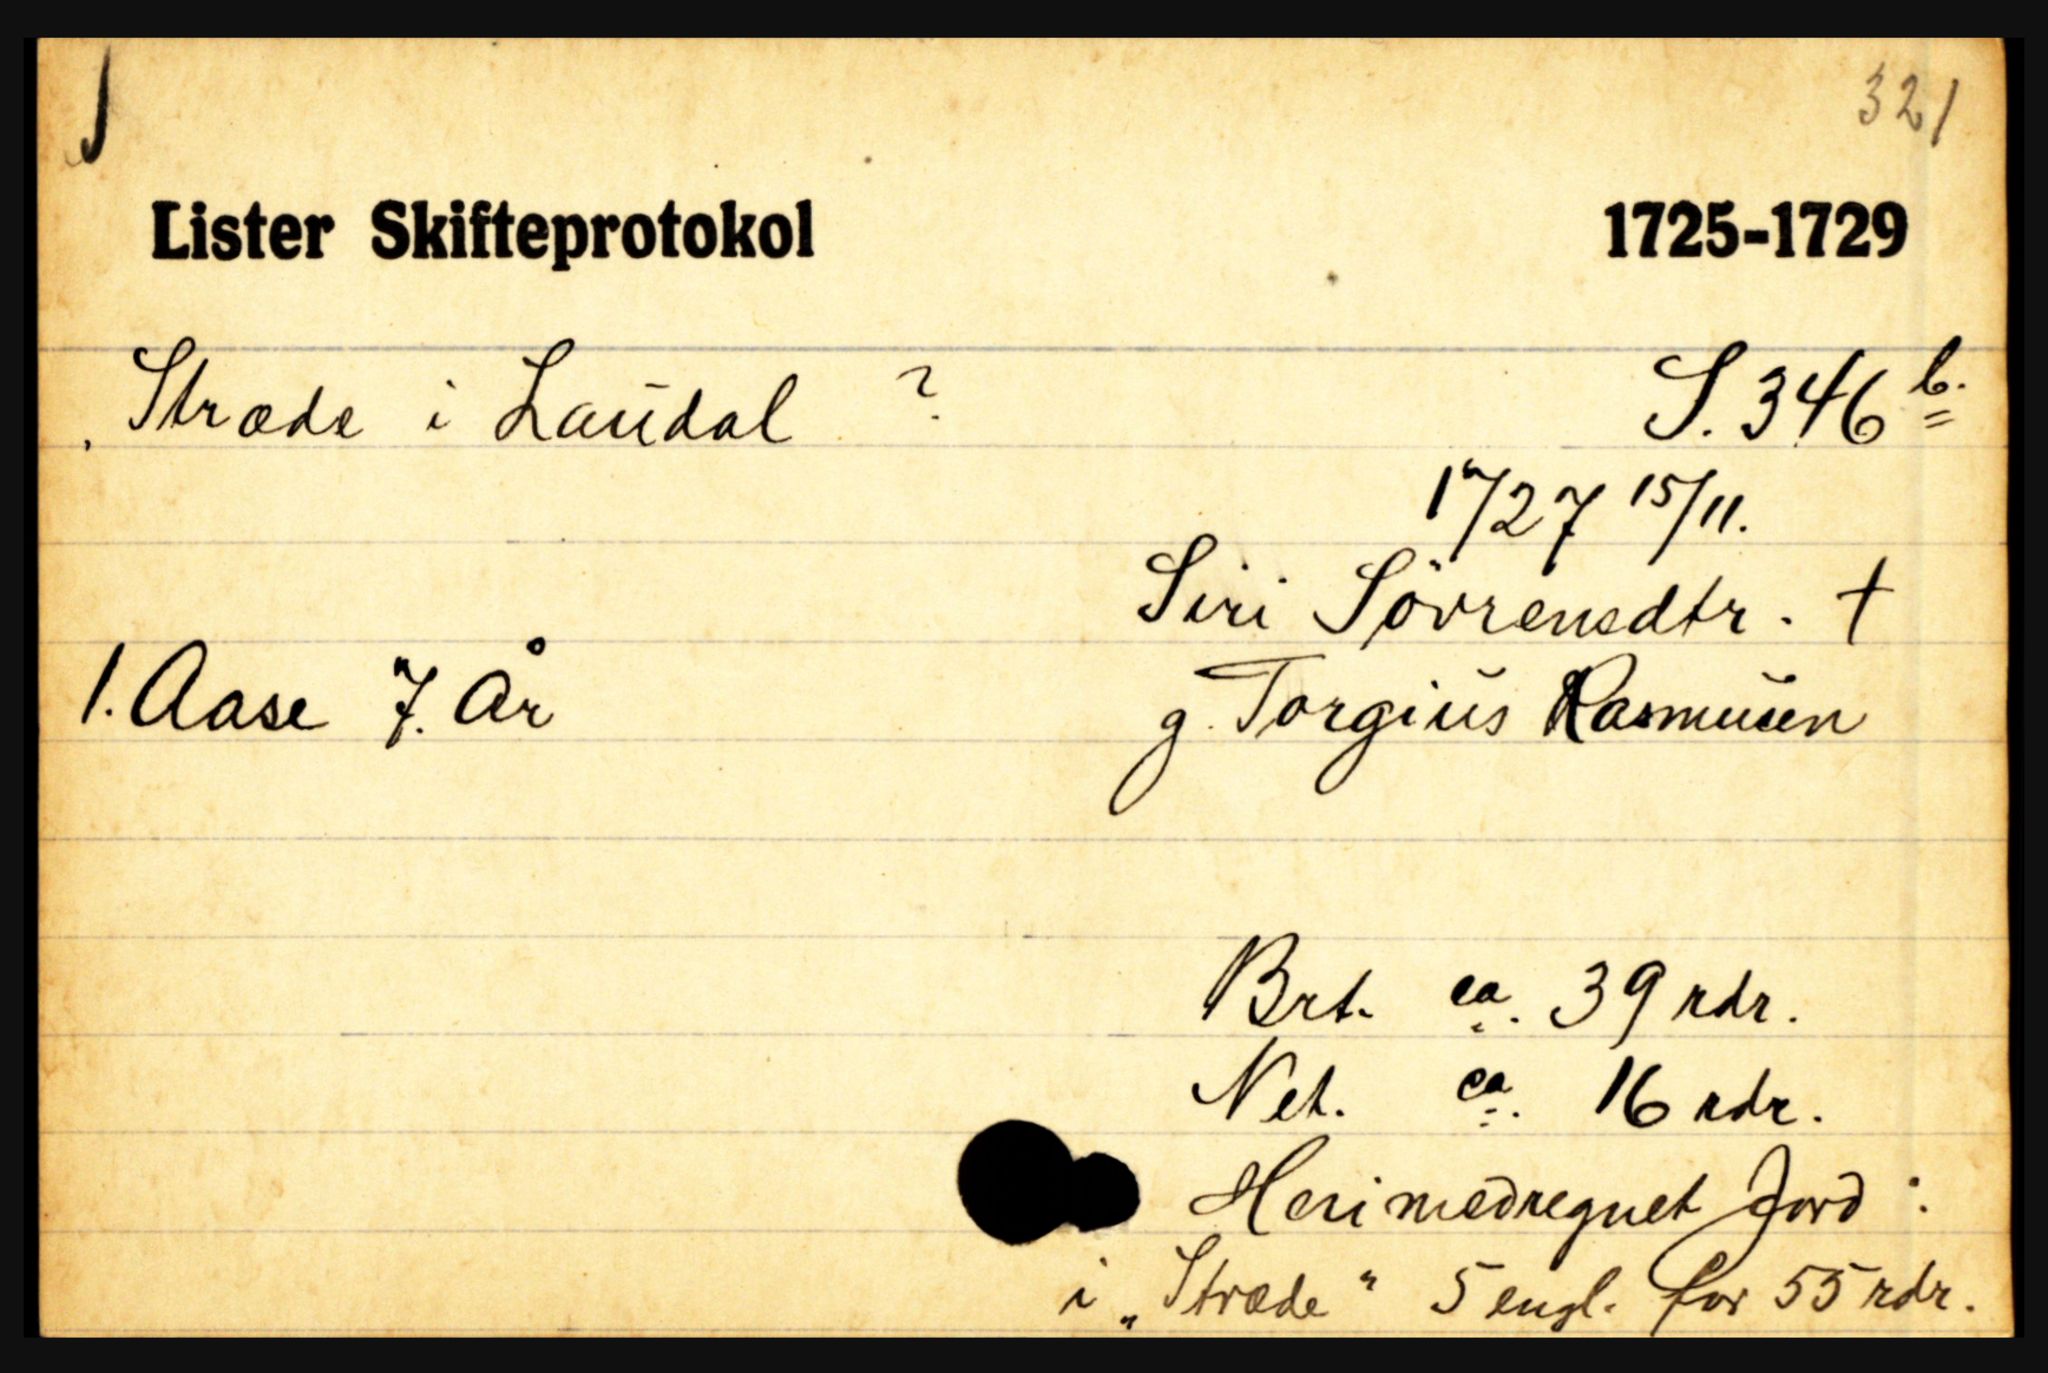 321
Lister Skifteprotokol 1725-1729
Stræde i Laudal ? S. 346 b.
1727 15/11.
Siri Sövrensdtr. †
1. Aase 7. År g. Torgius Rasmusen
Brt. ca. 39 rdr.
Net. ca. 16 rdr.
Heri medregnet Jord :
i „Stræde" 5 engl. for 55 rdr.